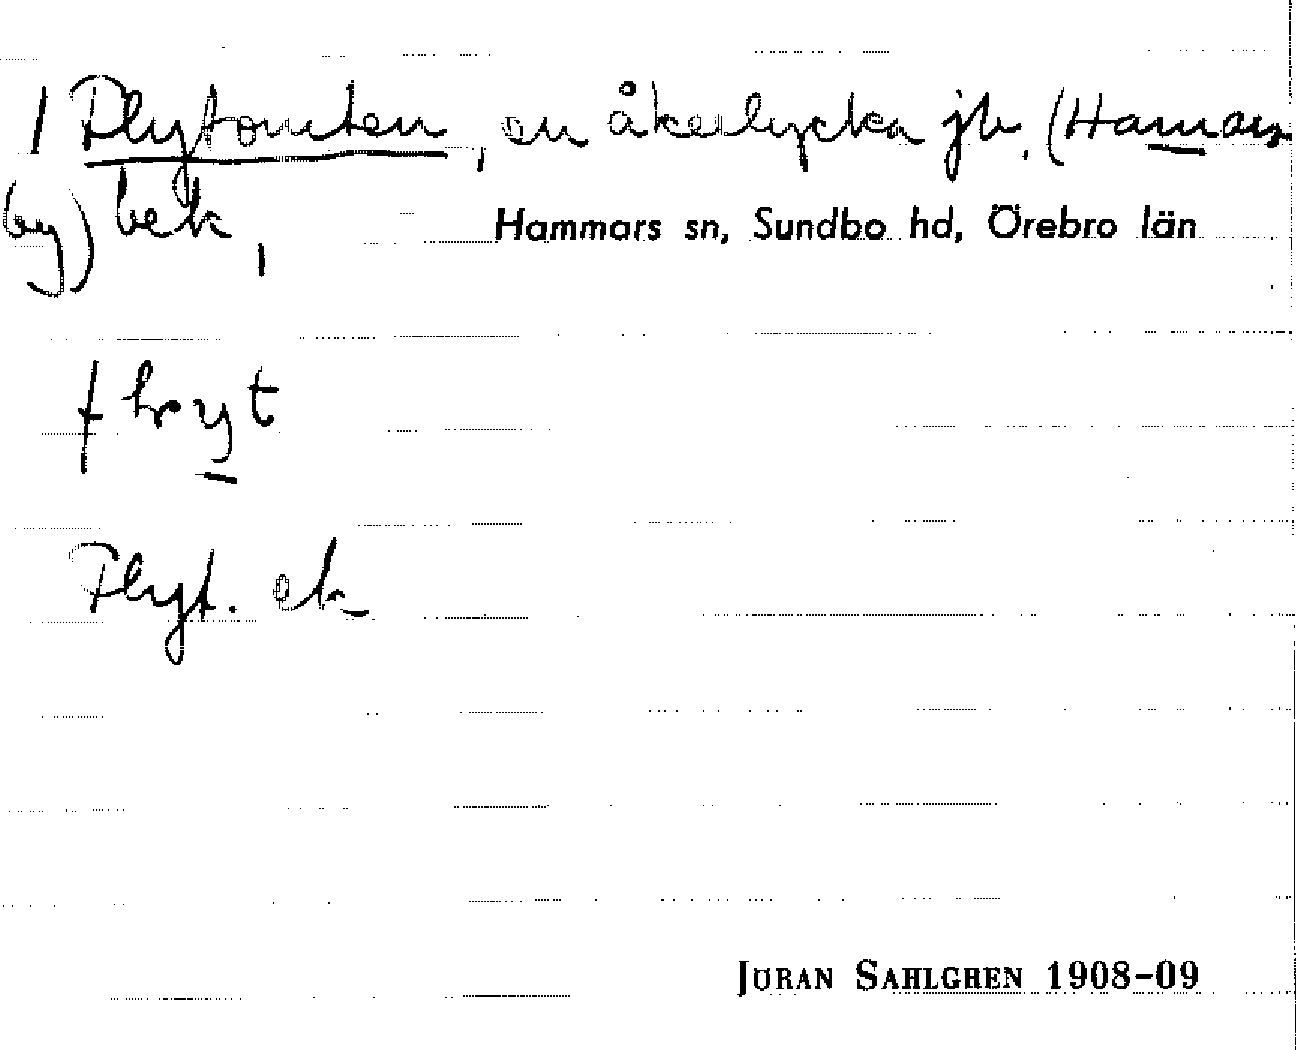 / Flytomten, en åkerlycka jb. (Hamars
by) bek,
Hammars sn, Sundbo hd, Örebro län
Flyt. ek
JÖRAN SAHLGREN 1908-09